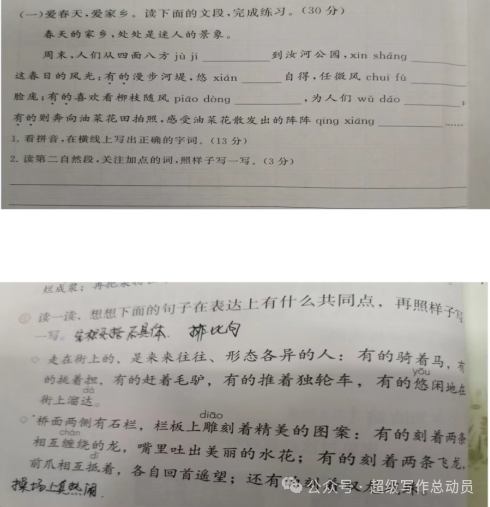 (一)爱春天,爱家乡。读下面的文段,完成练习。(30分)
春天的家乡,处处是迷人的景象。
周末,人们从四面八方 jù jí ________ 到汝河公园,xīn shǎng ________
这春日的风光:有的漫步河堤,悠 xián ________ 自得,任微风 chuī fú ________
脸庞;有的喜欢看柳枝随风 piāo dòng ________,为人们 wǔ dǎo ________;
有的则奔向油菜花田拍照,感受油菜花散发出的阵阵 qīng xiāng ________ ……
1. 看拼音,在横线上写出正确的字词。(13分)
2. 读第二自然段,关注加点的词,照样子写一写。(3分)
短成果;再把
读一读,想想下面的句子在表达上有什么共同点,再照样子写
一写。 具体 排比句
◇ 走在街上的,是来来往往、形态各异的人:有的骑着马,有
yōu
的挑着担,有的赶着毛驴,有的推着独轮车,有的悠闲地在
dá
街上溜达。
diāo
◇ 桥面两侧有石栏,栏板上雕刻着精美的图案:有的刻着两条
chán
相互缠绕的龙,嘴里吐出美丽的水花;有的刻着两条飞龙,
dǐ
前爪相互抵着,各自回首遥望;还有的刻着双龙
操场上真热闹
公众号 · 超级写作总动员